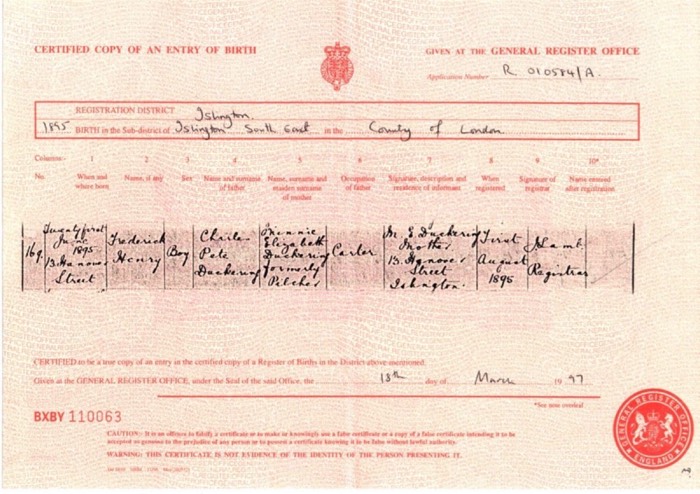 CERTIFIED COPY OF AN ENTRY OF BIRTH
GIVEN AT THE GENERAL REGISTER OFFICE
Application Number R 010584/A
REGISTRATION DISTRICT Islington
1895 BIRTH in the Sub-district of Islington South East in the County of London
Columns:- 1 2 3 4 5 6 7 8 9 10*
No. When and where born Name, if any Sex Name and surname of father Name, surname and maiden surname of mother Occupation of father Signature, description and residence of informant When registered Signature of registrar Name entered after registration
169 Twenty first June 1895 13 Hanover Street
Frederick Henry
Boy
Charles Pete Duckering
Minnie Elizabeth Duckering formerly Pilcher
Carter
M. E. Duckering Mother 13 Hanover Street Islington
First August 1895
J Lamb Registrar
CERTIFIED to be a true copy of an entry in the certified copy of a Register of Births in the District above mentioned.
Given at the GENERAL REGISTER OFFICE, under the Seal of the said Office, the 13th day of March 1997
*See note overleaf
BXBY 110063
CAUTION:- It is an offence to falsify a certificate or to make or knowingly use a false certificate or a copy of a false certificate intending it to be
accepted as genuine to the prejudice of any person or to possess a certificate knowing it to be false without lawful authority.
WARNING: THIS CERTIFICATE IS NOT EVIDENCE OF THE IDENTITY OF THE PERSON PRESENTING IT.
GENERAL REGISTER OFFICE
ENGLAND